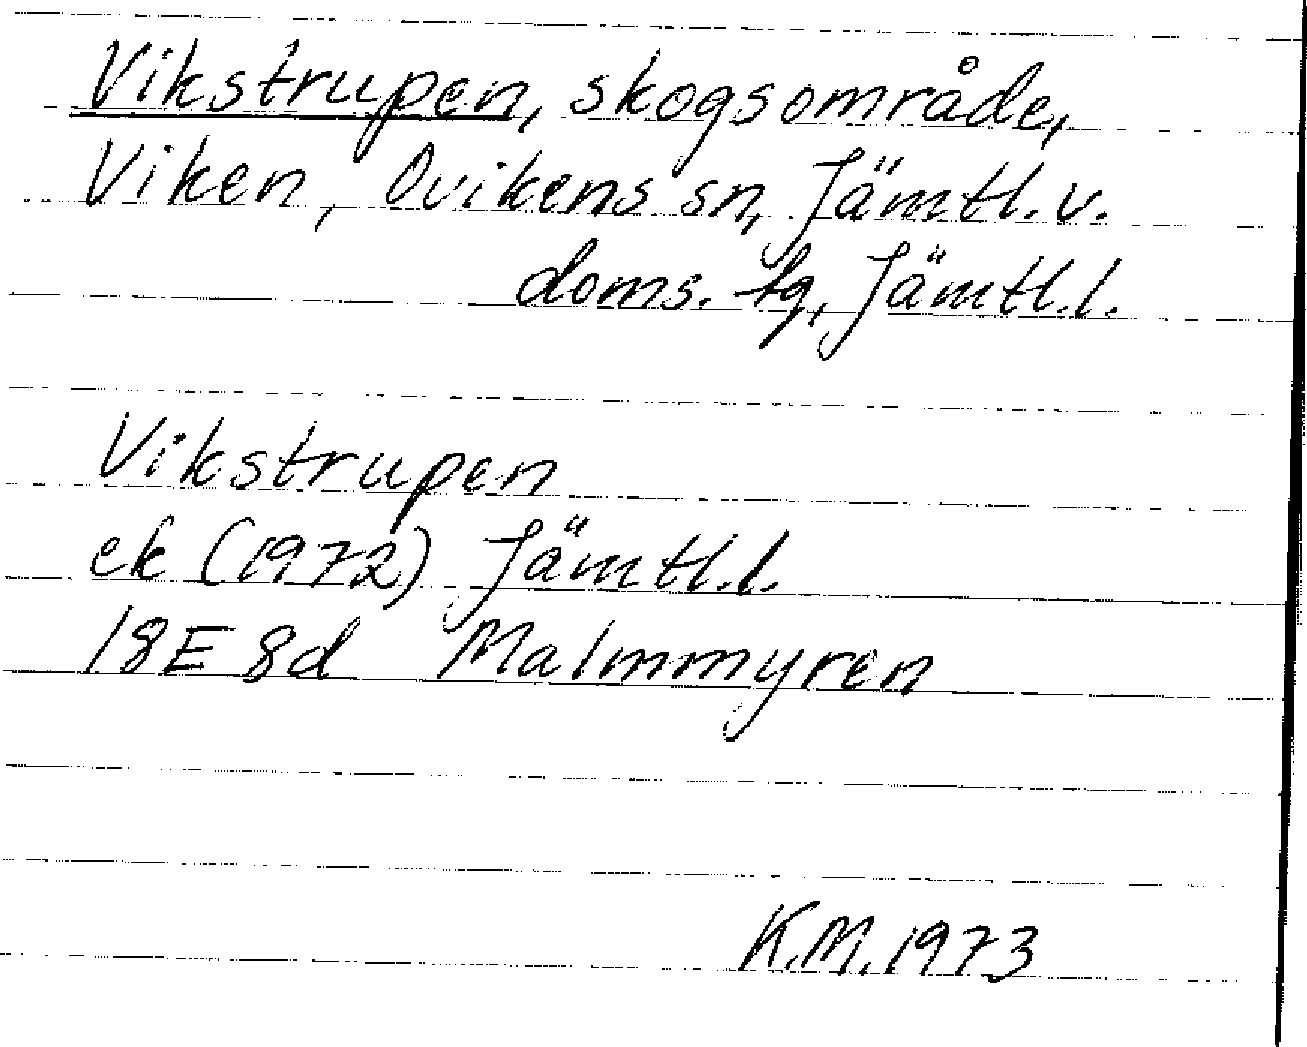 Vikstrupen, skogsområde,
Viken, Ovikens sn, Jämtl. v.
doms. tg, Jämtl. l.
Vikstrupen
ek (1972) Jämtl. l.
18E 8d Malmmyren
K.M. 1973